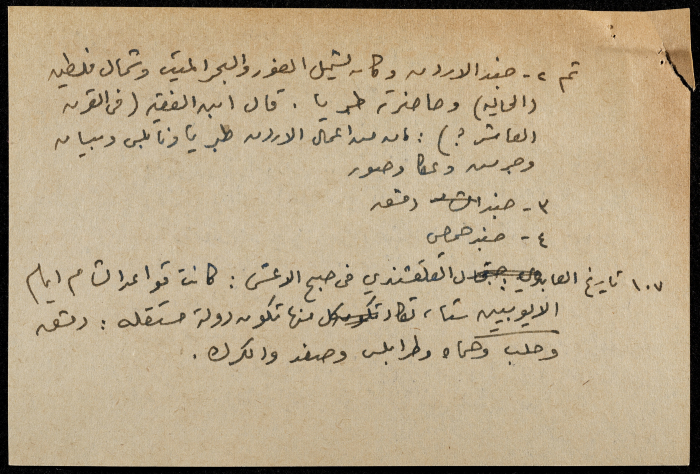 ثم ٢- جند الاردن وكان يشمل الغور والبحر الميت وشمال فلسطين
(الحالية) وحاضرته طبريا. قال ابن الفقيه (في القرن
العاشر؟): ان من اعمال الاردن طبريا ونابلس وبيسان
وجرس وعكا وصور
٣- جند دمشق
٤- جند حمص
١٠٧ تاريخ القلقشندي في صبح الاعشى: كانت قواعد الشام ايام
الايوبيين ستا، تكاد كل منها تكون دولة مستقله: دمشق
وحلب وحماه وطرابلس وصفد والكرك.